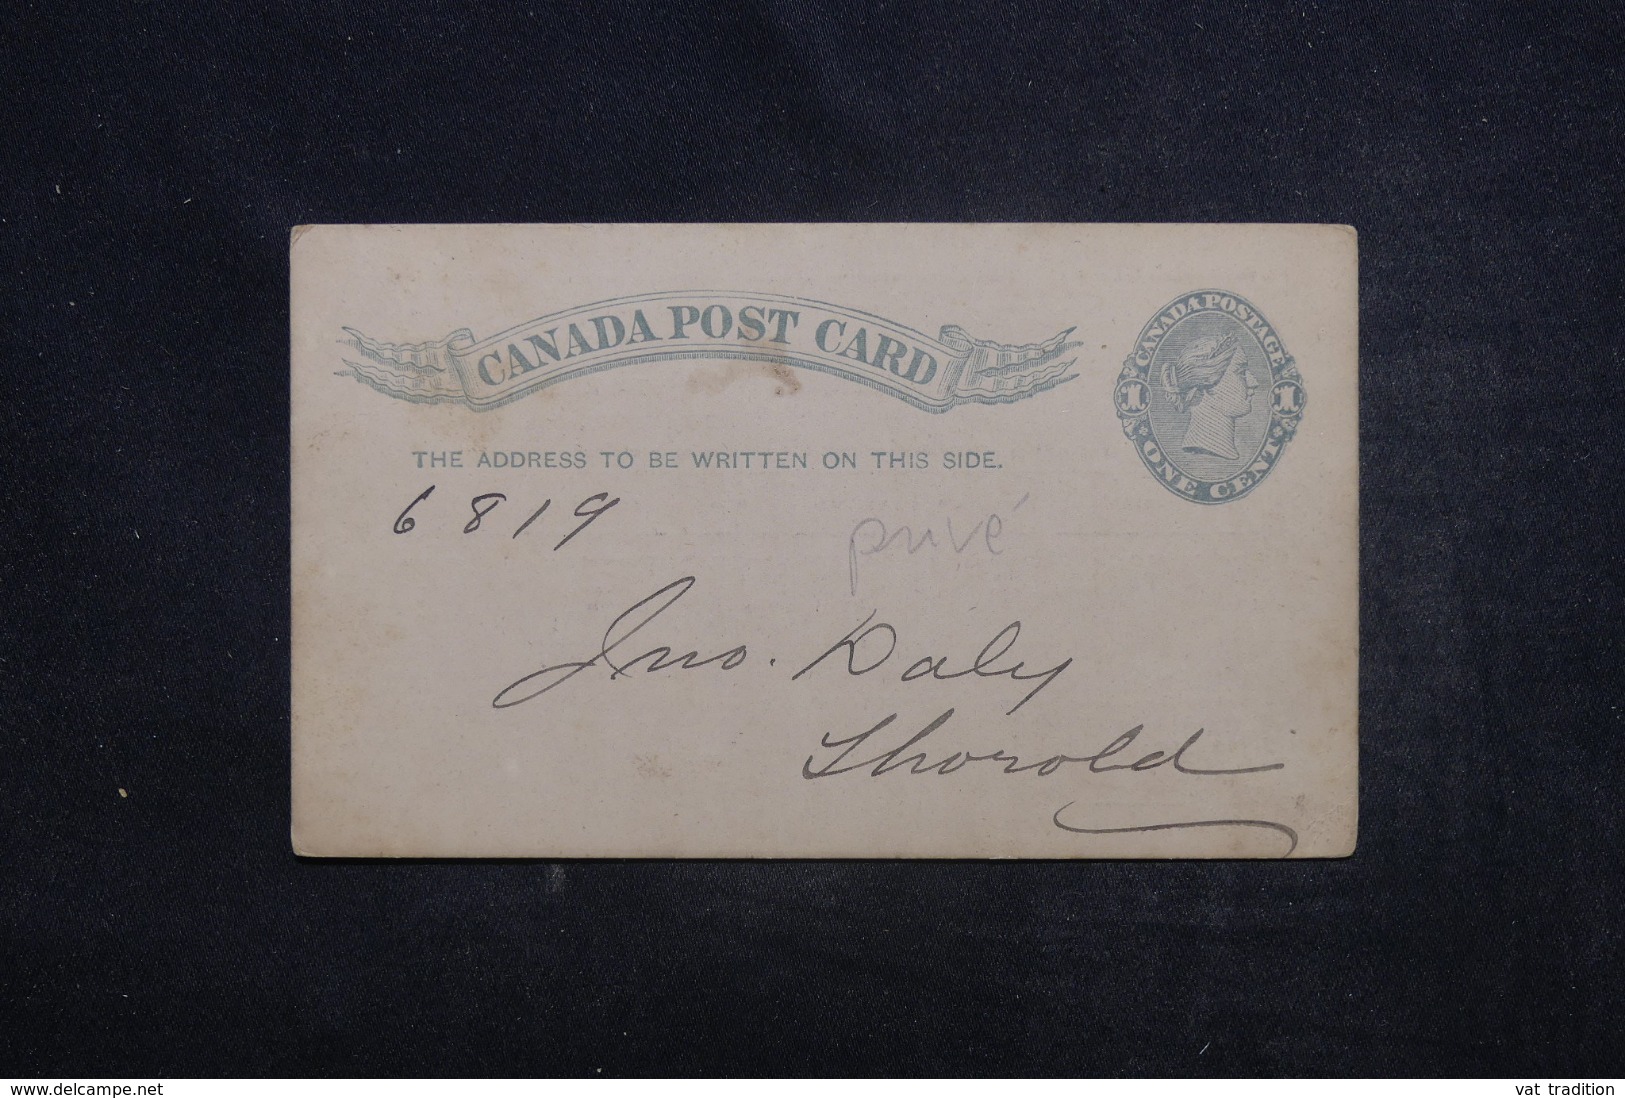 CANADA POST CARD
CANADA POSTAGE
1 1
ONE CENT
THE ADDRESS TO BE WRITTEN ON THIS SIDE.
6819
privé
Jno. Daly
Thorold
www.delcampe.net
vat tradition